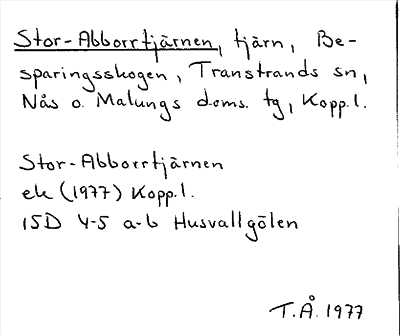 Stor-Abborrtjärnen, tjärn, Be-
sparingsskogen, Transtrands sn,
Nås o. Malungs doms. tg, Kopp.l.
Stor-Abborrtjärnen
ek (1977) Kopp.l.
15D 4-5 a-b Husvallgölen
T.Å. 1977